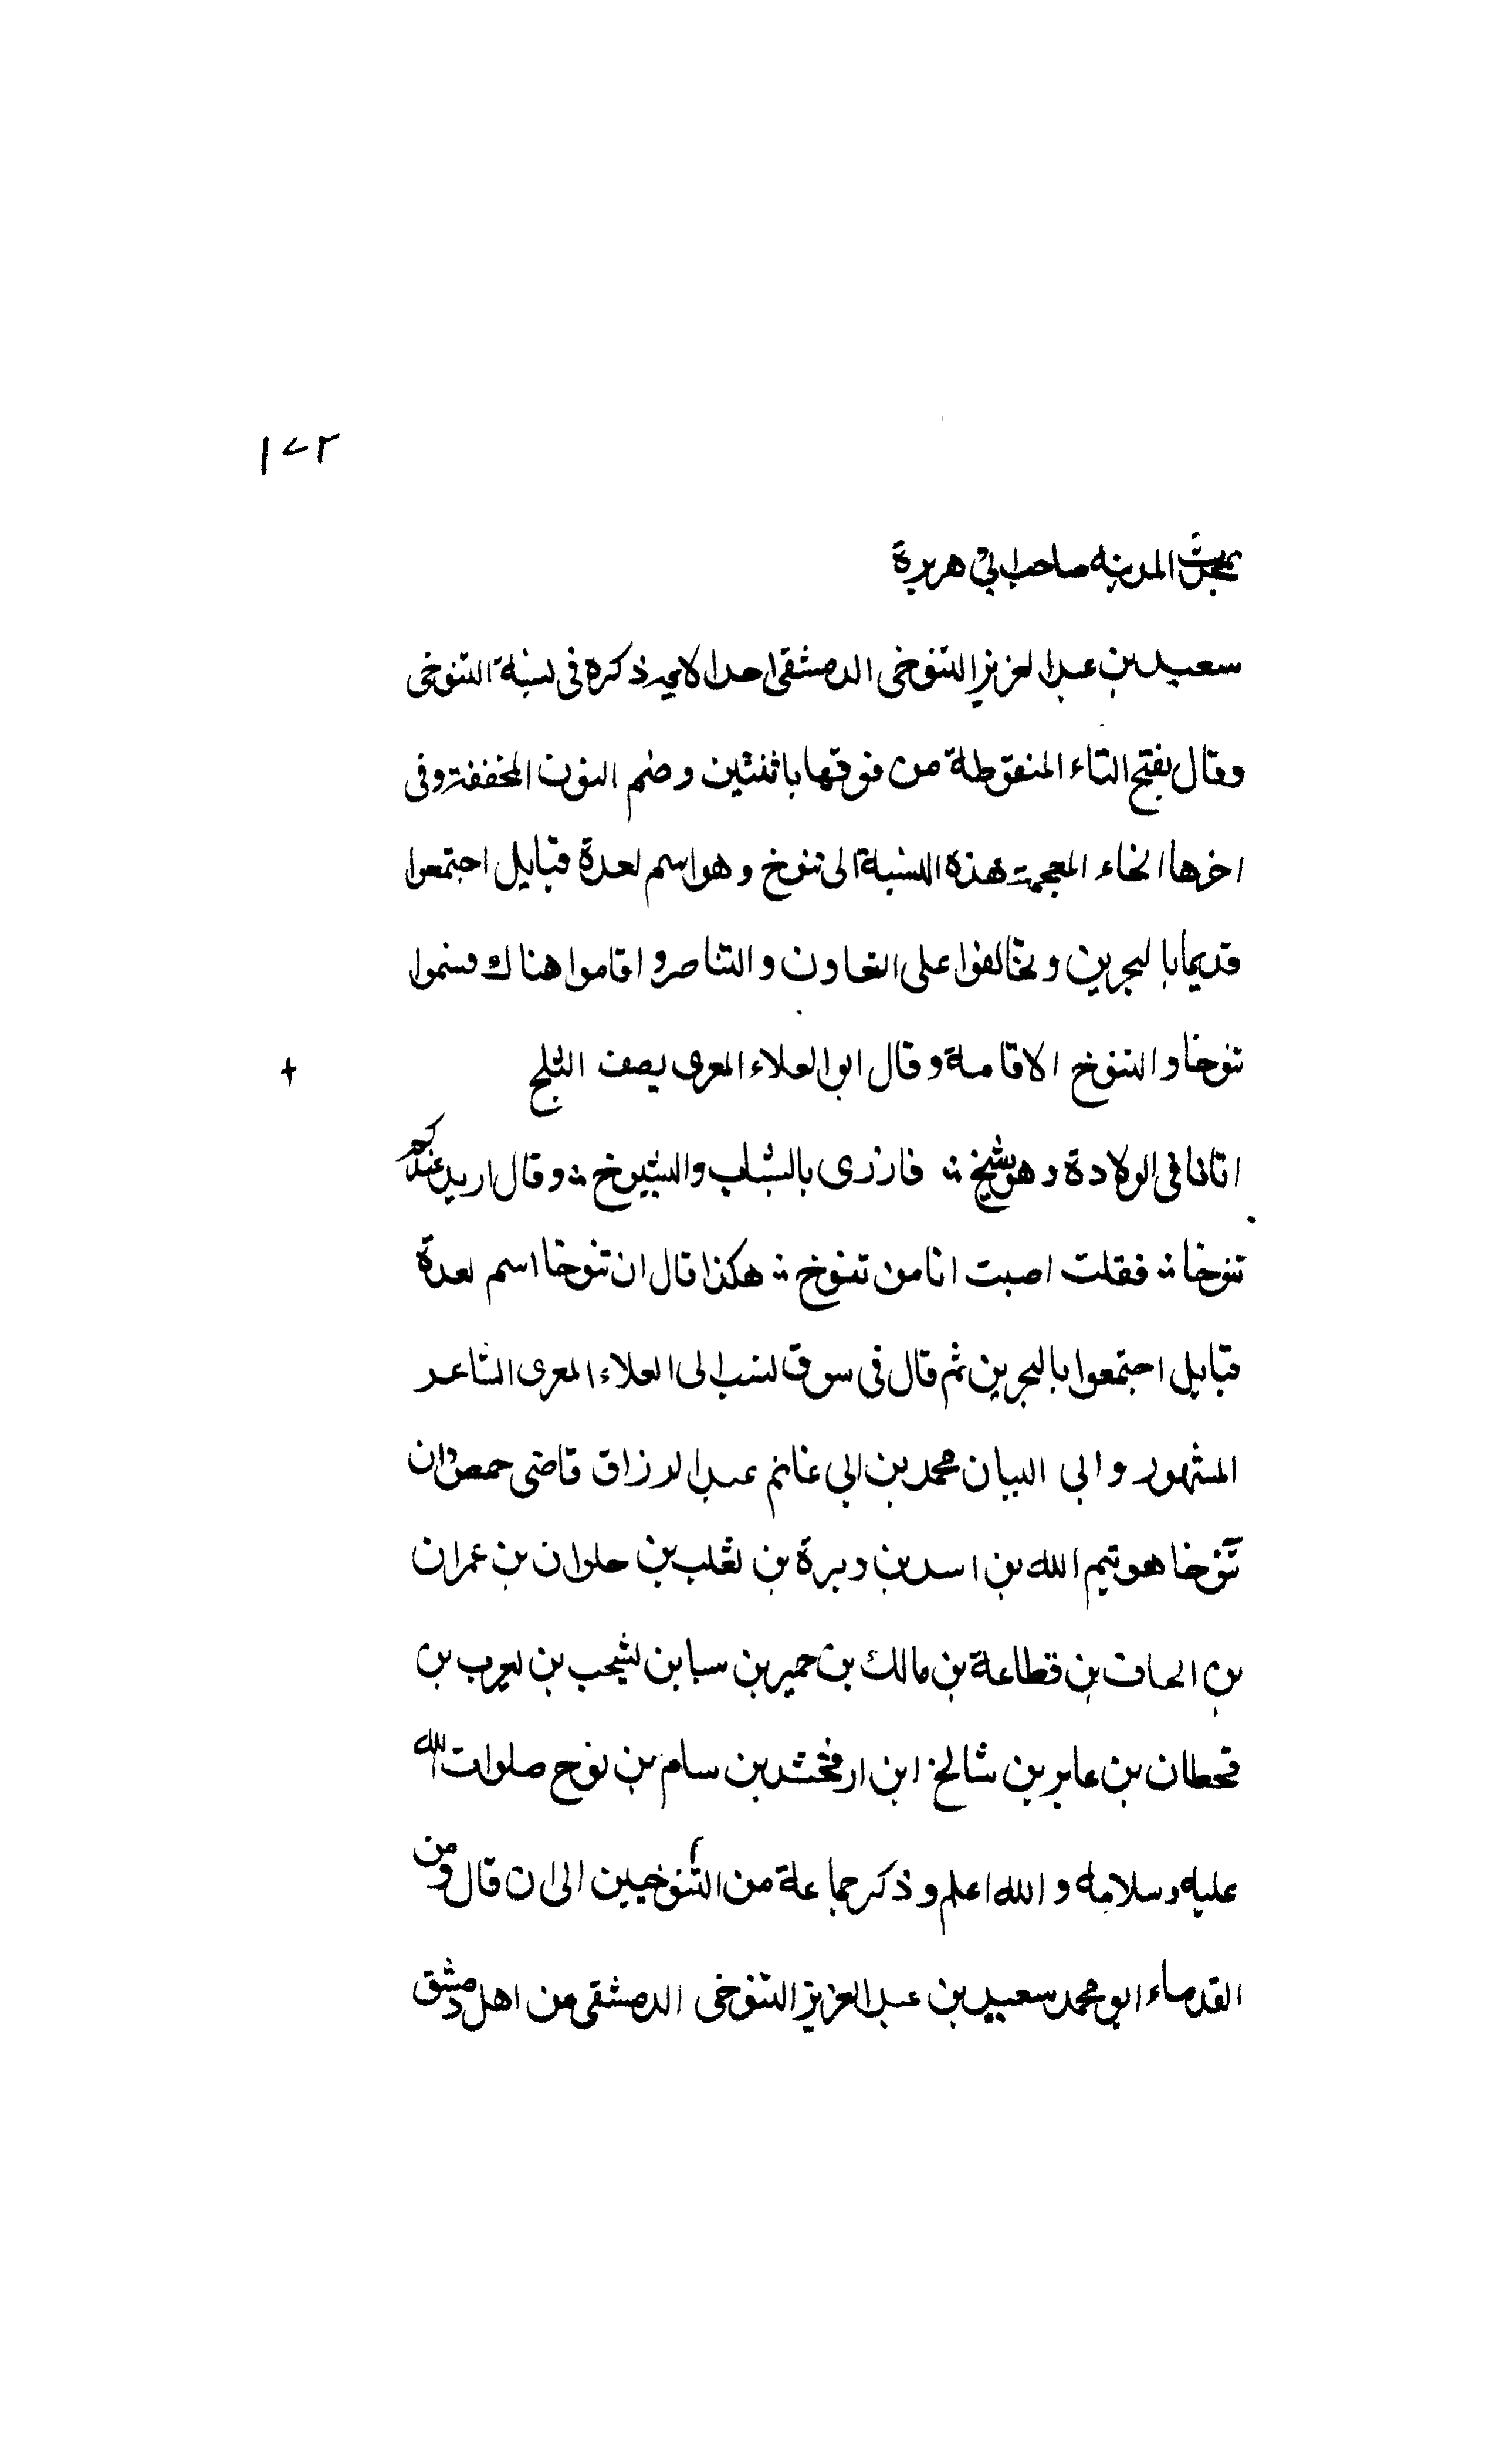 ١٧٢
محدث المدينه صاحب ابى هريرة
سعيد بن عبد العزيز التنوخى الدمشقى احد الايمه ذكره فى نسبة التنوخى
وقال بفتح التاء المنقوطة من فوقها باثنتين وضم النون المخففة وفى
اخرها الخاء المعجمة هذه النسبة الى تنوخ وهو اسم لعدة قبايل اجتمعوا
قديما بالبحرين وتحالفوا على التعاون والتناصر واقاموا هناك فسموا
تنوخا والتنوخ الاقامة وقال ابو العلاء المعرى يصف الثلج
اتانا فى الولادة وهو شيخ ؞ فازرى بالشباب والشيوخ ؞ وقال اريد عندكم
تنوخا ؞ فقلت اصبت انا من تنوخ ؞ هكذا قال ان تنوخا اسم لعدة
قبايل اجتمعوا بالبحرين ثم قال فى سوق نسب ابى العلاء المعرى الشاعر
المشهور وابى البيان محمد بن ابى غانم عبد الرزاق قاضى حمص وان
تنوخا هو تيم الله بن اسد بن وبرة بن تغلب بن حلوان بن عمران
بن الحاف بن قطاعة بن مالك بن حمير بن سبا بن يشجب بن يعرب بن
قحطان بن عابر بن شالخ ابن ارفخشد بن سام بن نوح صلوات الله
عليه وسلامه والله اعلم وذكر جماعة من التنوخيين الى ان قال ومن
القدماء ابو محمد سعيد بن عبد العزيز التنوخى الدمشقى من اهل دمشق